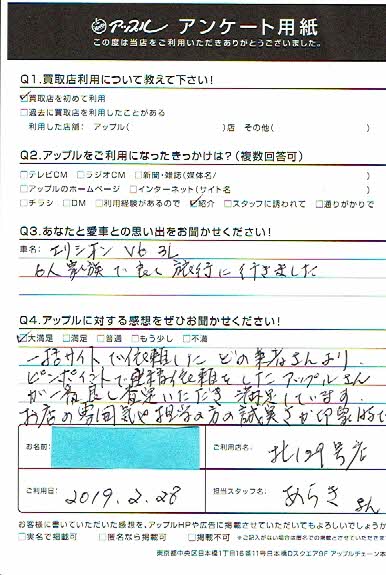 アップル アンケート用紙
この度は当店をご利用いただきありがとうございました。
Q1.買取店利用について教えて下さい!
☑買取店を初めて利用
□過去に買取店を利用したことがある
利用した店舗: アップル( )店 その他( )
Q2.アップルをご利用になったきっかけは?(複数回答可)
□テレビCM □ラジオCM □新聞・雑誌(媒体名/ )
□アップルのホームページ □インターネット(サイト名 )
□チラシ □DM □利用経験があるので ☑紹介 □スタッフに誘われて □通りがかりで
Q3.あなたと愛車との思い出をお聞かせください!
車名: エリシオン V6 3L
6人家族で良く旅行に行きました
Q4.アップルに対する感想をぜひお聞かせください!
☑大満足 □満足 □普通 □もう少し □不満
一括サイトで依頼した どの業者さんより
ピンポイントで連絡依頼をしたアップルさん
が一番良し査定いただき満足しています。
お店の雰囲気や担当の方の誠実さが印象的で
お名前:
ご利用店名:
北129号店
ご利用日:
2019.2.28
担当スタッフ名:
あらき さん
お客様に書いていただいた感想を、アップルHPや広告に掲載させていただいてもよろしいでしょうか
□実名で掲載可 □匿名なら掲載可 □掲載不可 ※ご記入がない場合は匿名での掲載とさせていただきます
東京都中央区日本橋1丁目16番11号日本橋DスクエアOF アップルチェーン本